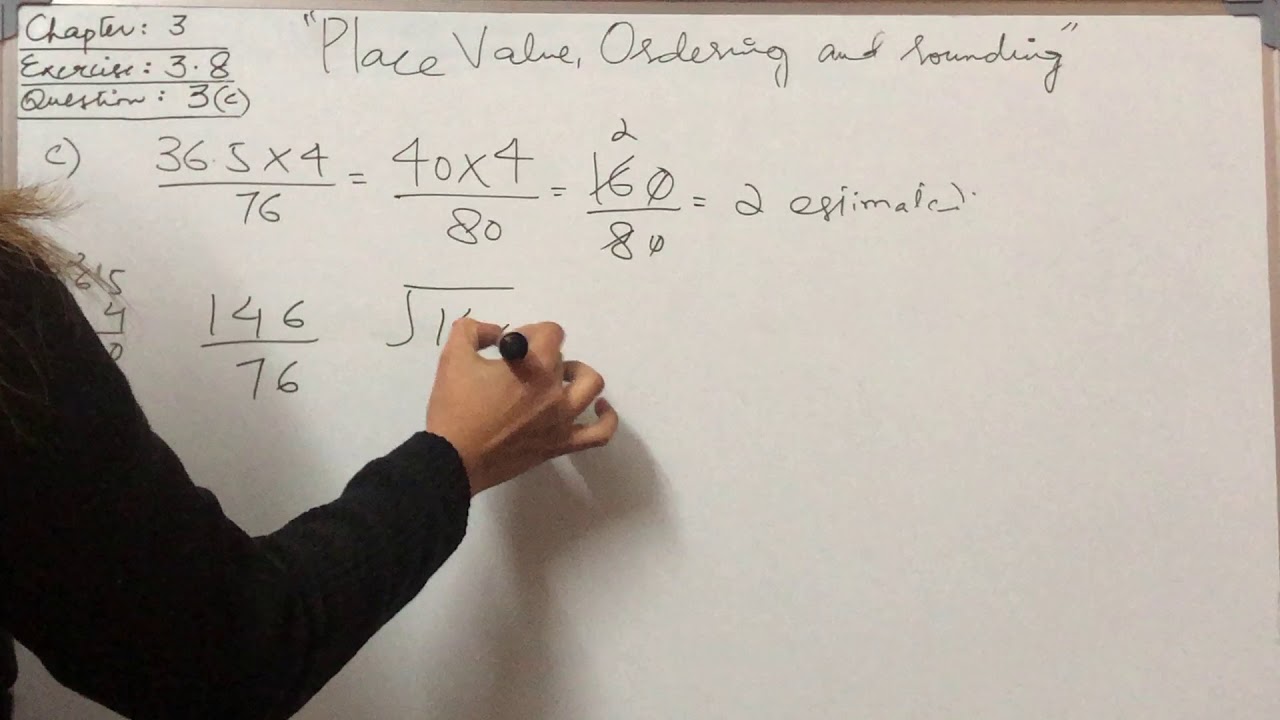 Chapter: 3
Exercise: 3.8
Question: 3(c)
"Place Value, Ordering and rounding"
c) 36.5 X 4 / 76 = 40 X 4 / 80 = 160 / 80 = 2 estimate
2
146 / 76